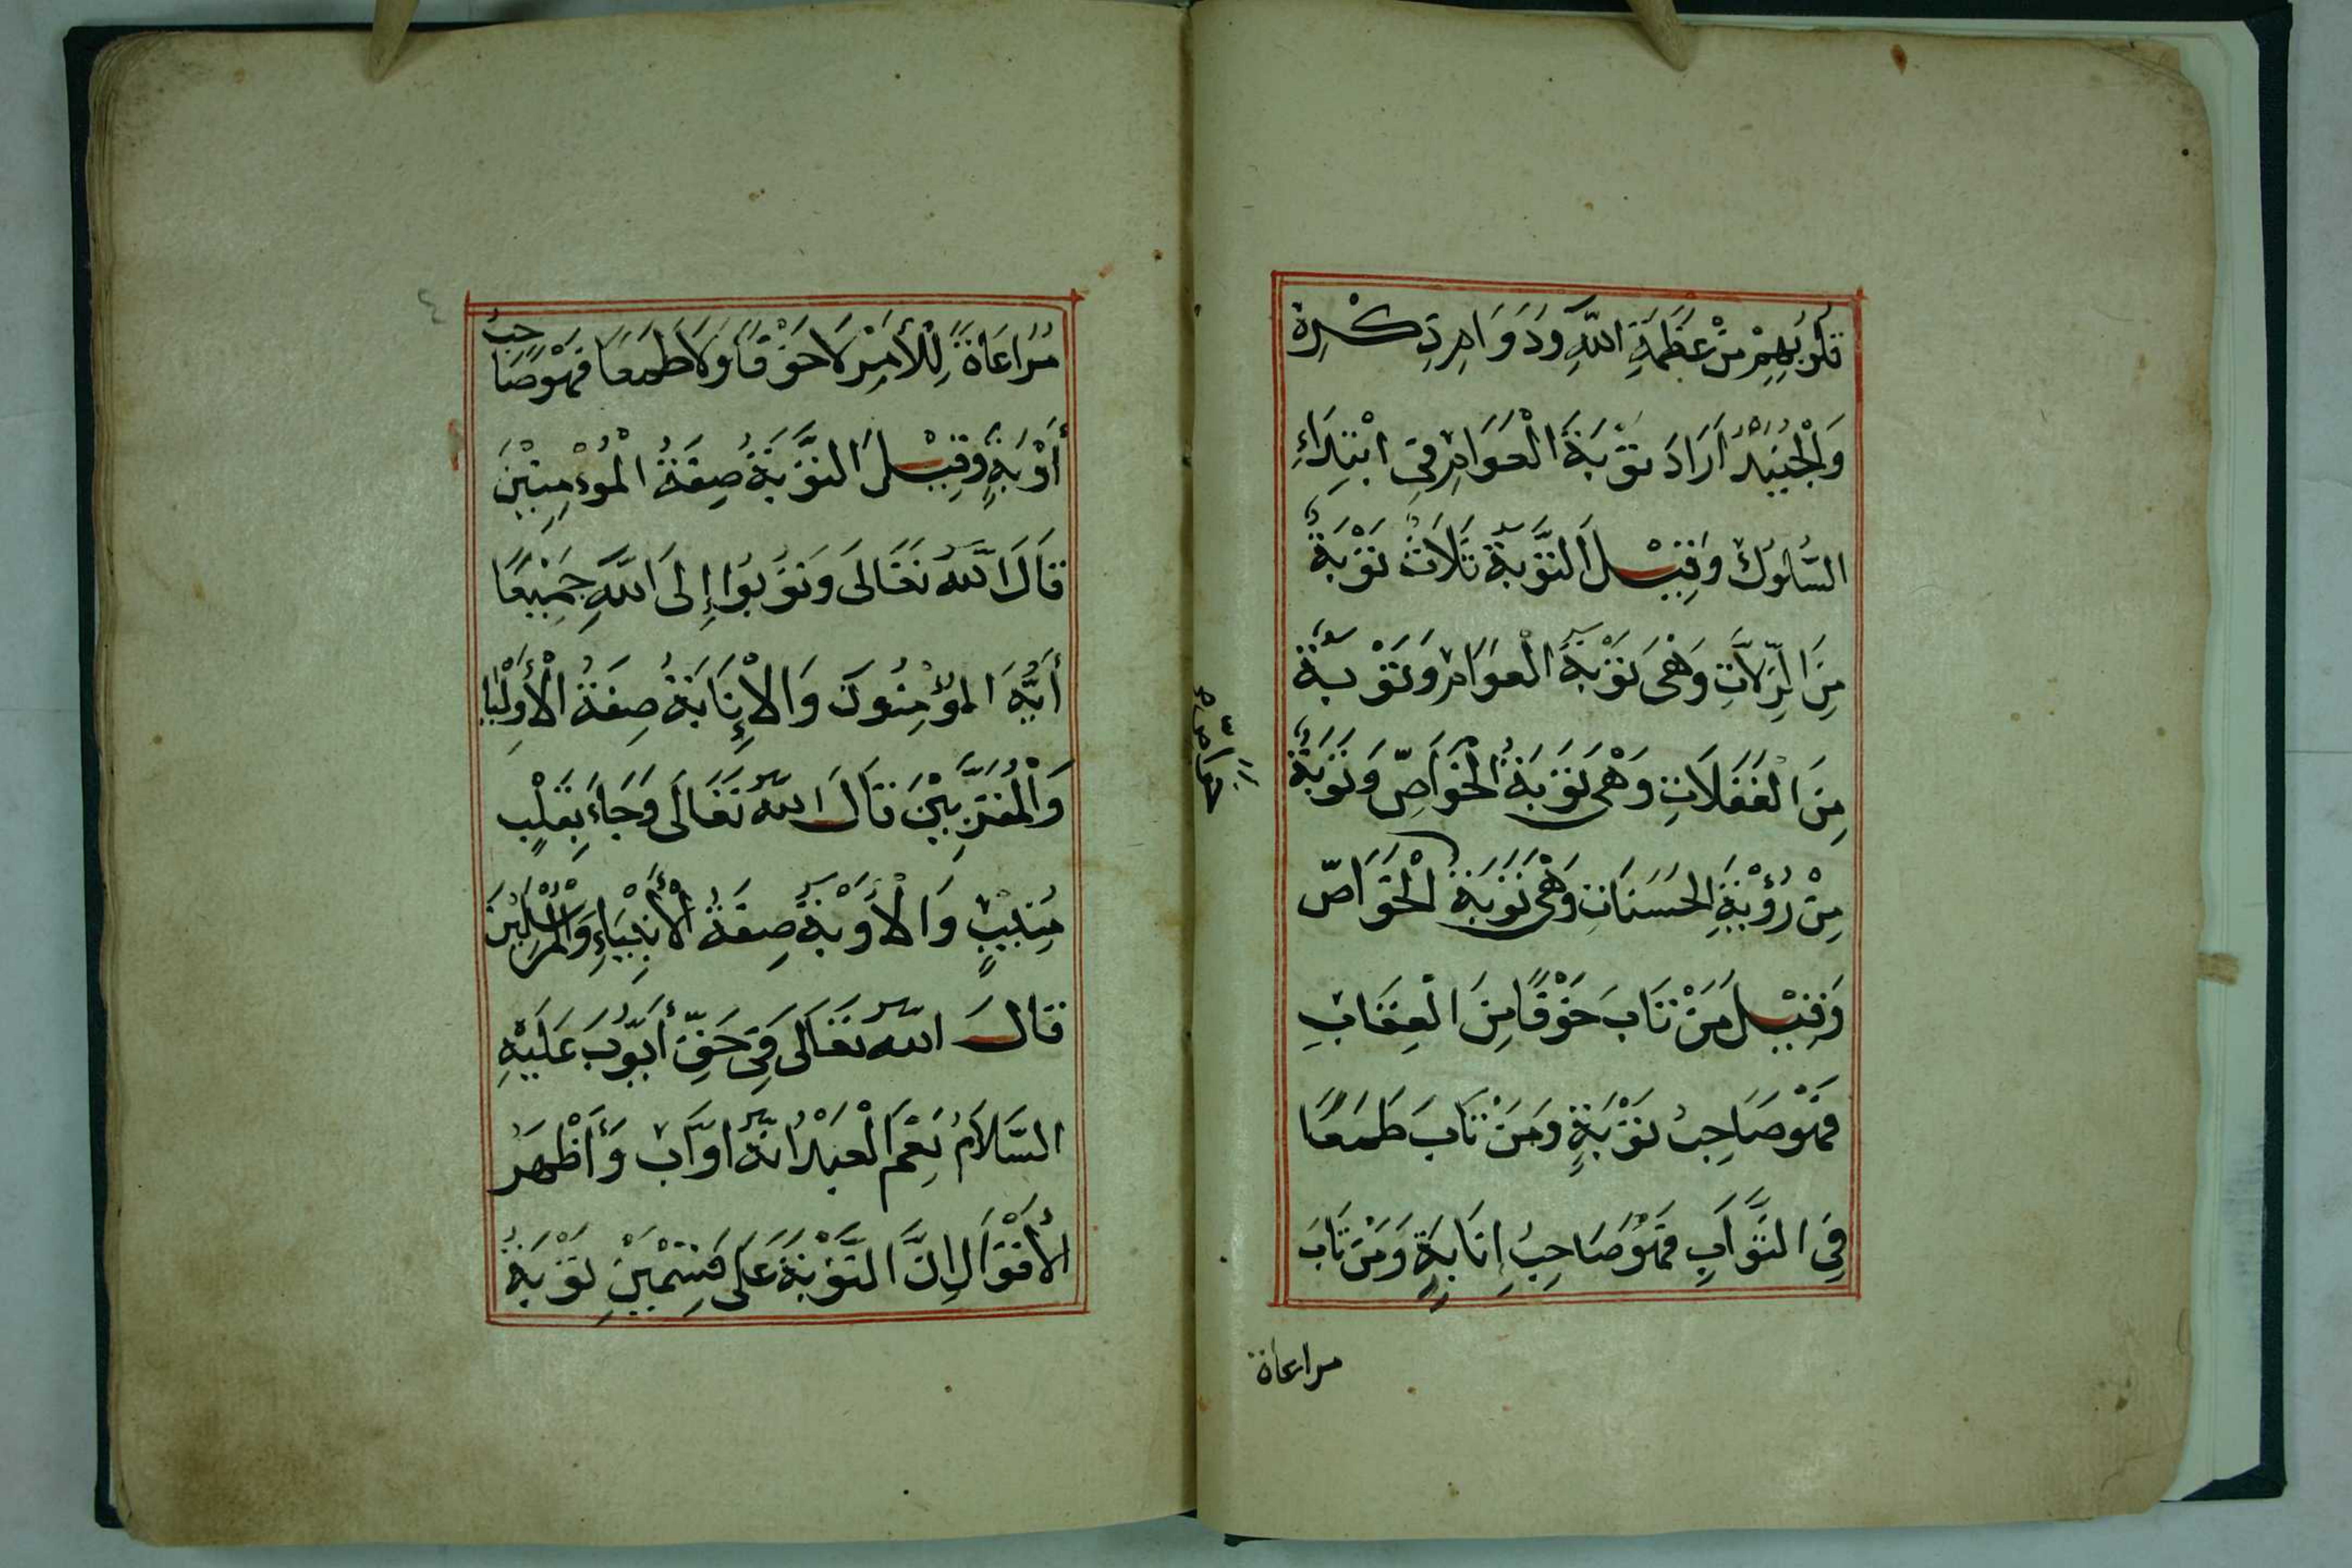 قُلُوبِهِمْ مِنْ عَظَمَةِ اللّٰهِ وَدَوَامِ ذِكْرِهِ
وَالْجُنَيْدُ اَرَادَ تَوْبَةَ الْعَوَامِ فِي ابْتِدَاءِ
السُّلُوكِ وَقِيْلَ التَّوْبَةُ ثَلَاثٌ تَوْبَةٌ
مِنَ الزَّلَّاتِ وَهِيَ تَوْبَةُ الْعَوَامِ وَتَوْبَةٌ
مِنَ الْغَفَلَاتِ وَهِيَ تَوْبَةُ الْخَوَاصِّ وَتَوْبَةٌ
مِنْ رُؤْيَةِ الْحَسَنَاتِ وَهِيَ تَوْبَةُ الْخَوَاصّ
وَقِيْلَ مَنْ تَابَ خَوْفًا مِنَ الْعِقَابِ
فَهُوَ صَاحِبُ تَوْبَةٍ وَمَنْ تَابَ طَمَعًا
فِي الثَّوَابِ فَهُوَ صَاحِبُ اِنَابَةٍ وَمَنْ تَابَ
مراعاة
مُرَاعَاةً لِلْأَمْرِ لَا خَوْفًا وَلَا طَمَعًا فَهُوَ صَاحِبُ
أَوْبَةٍ وَقِيْلَ التَّوْبَةُ صِفَةُ الْمُؤْمِنِيْنَ
قَالَ اللّٰهُ تَعَالَى وَتُوبُوا إِلَى اللّٰهِ جَمِيْعًا
أَيُّهَ الْمُؤْمِنُونَ وَالْإِنَابَةُ صِفَةُ الْأَوْلِيَا
وَالْمُقَرَّبِيْنَ قَالَ اللّٰهُ تَعَالَى وَجَاءَ بِقَلْبٍ
مُنِيْبٍ وَالْأَوْبَةُ صِفَةُ الْأَنْبِيَاءِ وَالْمُرْسَلِيْنَ
قَالَ اللّٰهُ تَعَالَى فِي حَقِّ أَيُّوبَ عَلَيْهِ
السَّلَامُ نِعْمَ الْعَبْدُ اِنَّهُ اَوَّابٌ وَأَظْهَرُ
الْأَقْوَالِ اِنَّ التَّوْبَةَ عَلَى قِسْمَيْنِ تَوْبَةُ
٤